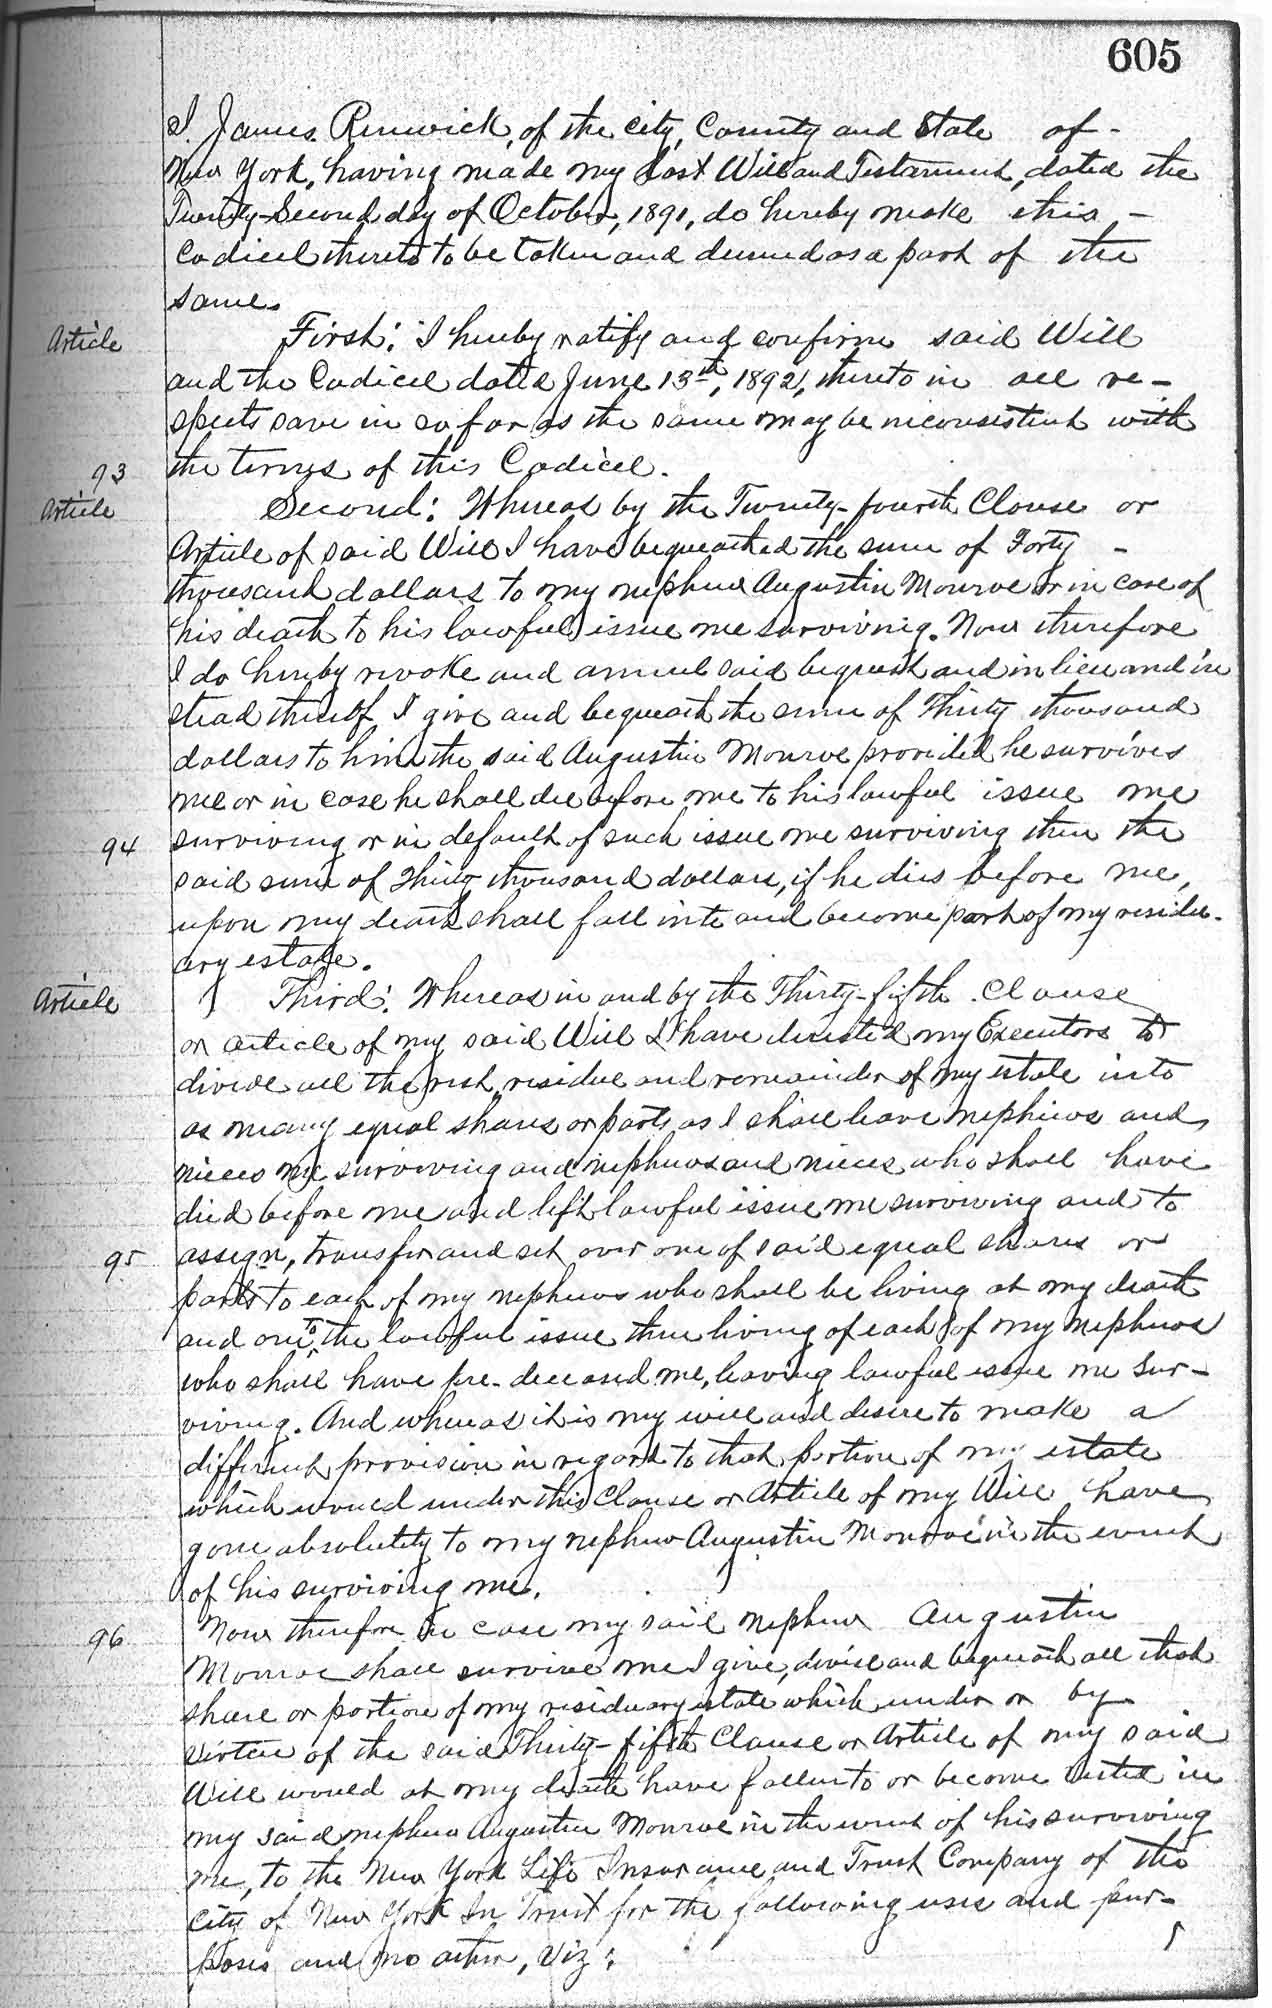 605
I, James Renwick, of the City, County and State of -
New York, having made my Last Will and Testament, dated the
Twenty-Second day of October, 1891, do hereby make this -
Codicil thereto to be taken and deemed as a part of the
same.
Article
First: I hereby ratify and confirm said Will
and the Codicil dated June 13th, 1892, thereto in all re-
spects save in so far as the same may be inconsistent with
93
the terms of this Codicil.
Article
Second: Whereas by the Twenty-fourth Clause or
Article of said Will I have bequeathed the sum of Forty -
thousand dollars to my nephew Augustin Monroe or in case of
his death to his lawful issue me surviving. Now therefore
I do hereby revoke and annul said bequest and in lieu and in
stead thereof I give and bequeath the sum of Thirty thousand
dollars to him the said Augustin Monroe provided he survives
me or in case he shall die before me to his lawful issue me
94
surviving or in default of such issue me surviving then the
said sum of Thirty thousand dollars, if he dies before me,
upon my death shall fall into and become part of my residu-
ary estate.
Article
Third: Whereas in and by the Thirty-fifth Clause
or article of my said Will I have directed my Executors to
divide all the rest, residue and remainder of my estate into
as many equal shares or parts as I shall leave nephews and
nieces me surviving and nephews and nieces who shall have
died before me and left lawful issue me surviving and to
95
assign, transfer and set over one of said equal shares or
parts to each of my nephews who shall be living at my death
and one to the lawful issue then living of each of my nephews
who shall have pre-deceased me, leaving lawful issue me sur-
viving. And whereas it is my will and desire to make a
different provision in regard to that portion of my estate
which would under this Clause or Article of my Will have
gone absolutely to my nephew Augustin Monroe in the event
of his surviving me.
96
Now therefore in case my said nephew Augustin
Monroe shall survive me I give, devise and bequeath all that
share or portion of my residuary estate which under or by
virtue of the said Thirty-fifth Clause or Article of my said
Will would at my death have fallen to or become vested in
my said nephew Augustin Monroe in the event of his surviving
me, to the New York Life Insurance and Trust Company of the
City of New York In Trust for the following uses and pur-
poses and no other, viz: